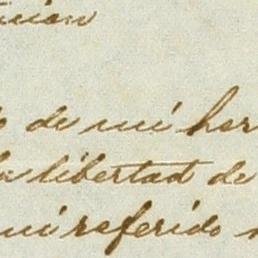 de mi her
la libertad de
mi referido